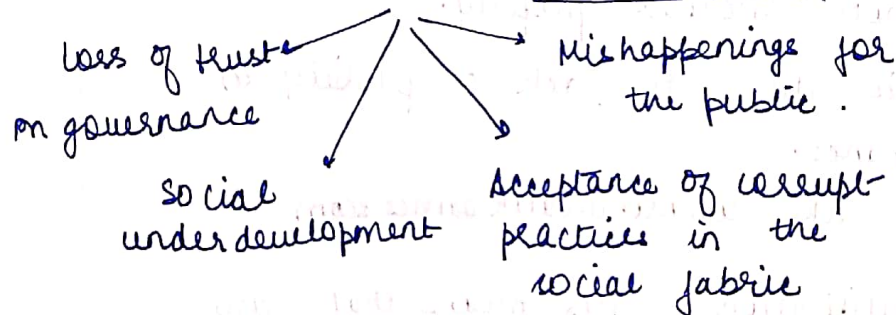 Loss of trust
on governance
Mishappenings for
the public.
social
underdevelopment
Acceptance of corrupt
practices in the
social fabric